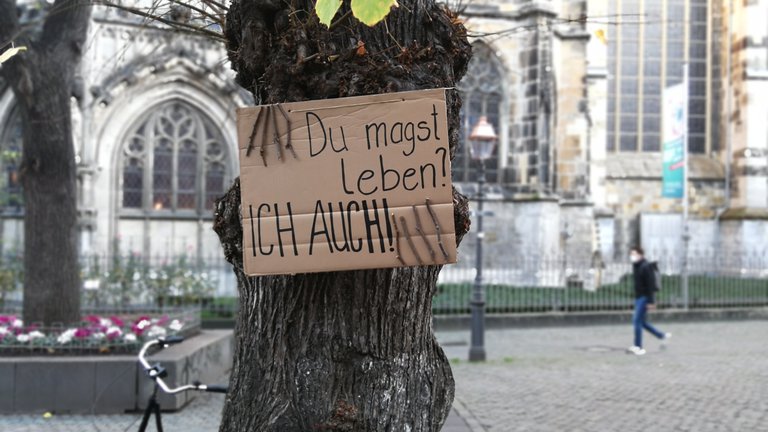 Du magst
leben?
ICH AUCH!